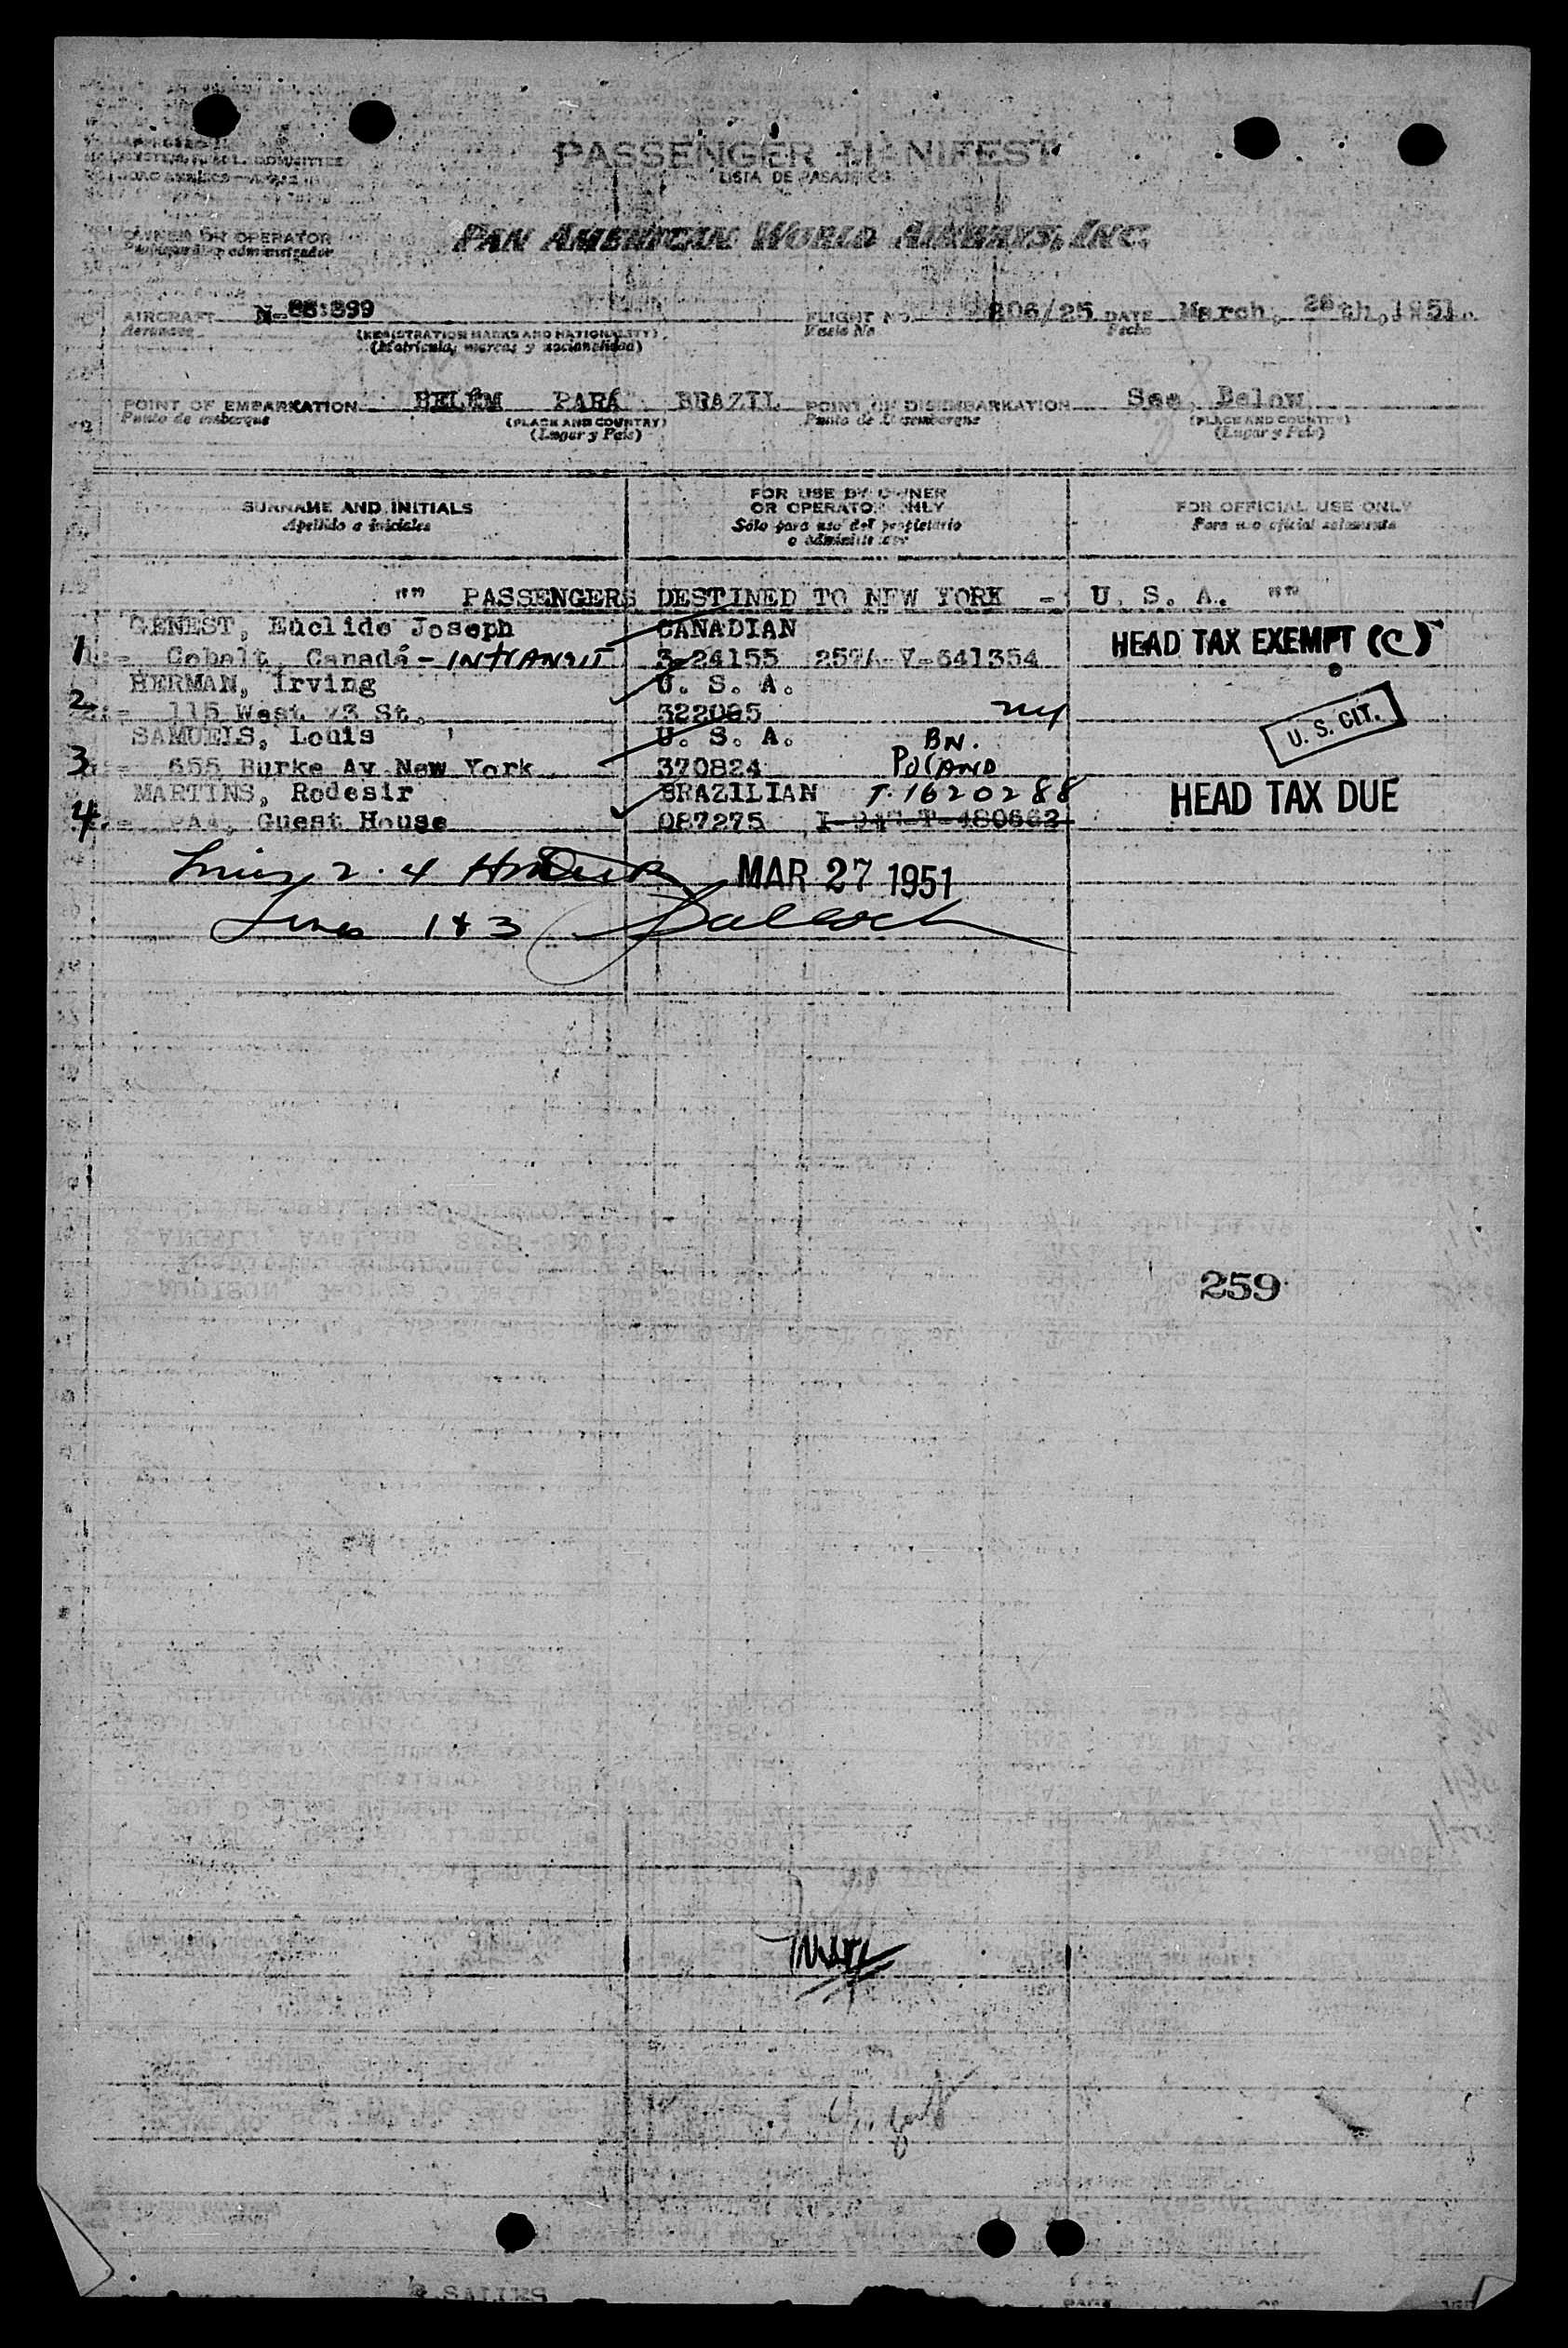 PASSENGER MANIFEST
LISTA DE PASAJEROS
OWNER OR OPERATOR
PAN AMERICAN WORLD AIRWAYS, INC.
AIRCRAFT N-88:899 FLIGHT NO. 206/25 DATE March, 26th, 1951.
Aeronave (REGISTRATION MARKS AND NATIONALITY) Vuelo No Fecha
(Matrícula, marcas y nacionalidad)
POINT OF EMBARKATION BELÉM PARÁ BRAZIL POINT OF DISEMBARKATION See, Below
Punto de embarque (PLACE AND COUNTRY) Punto de Desembarque (PLACE AND COUNTRY)
(Lugar y País) (Lugar y País)
SURNAME AND INITIALS FOR USE BY OWNER OR OPERATOR ONLY FOR OFFICIAL USE ONLY
Apellido e iniciales Sólo para uso del propietario o administrador Para uso oficial solamente
"" PASSENGERS DESTINED TO NEW YORK - U. S. A. ""
GENEST, Euclide Joseph CANADIAN HEAD TAX EXEMPT (C)
1 Cobalt, Canadá - INTRANSIT 3-24155 257A-V-641354
HERMAN, Irving U. S. A.
2 115 West 73 St. 322085 ny U. S. CIT.
SAMUELS, Louis U. S. A. BN.
3 655 Burke Av New York 370824 POLAND
MARTINS, Rodesir BRAZILIAN T-1620288 HEAD TAX DUE
4 PAA, Guest House 087275
Lines 2. 4 MAR 27 1951
Lines 1 & 3
259